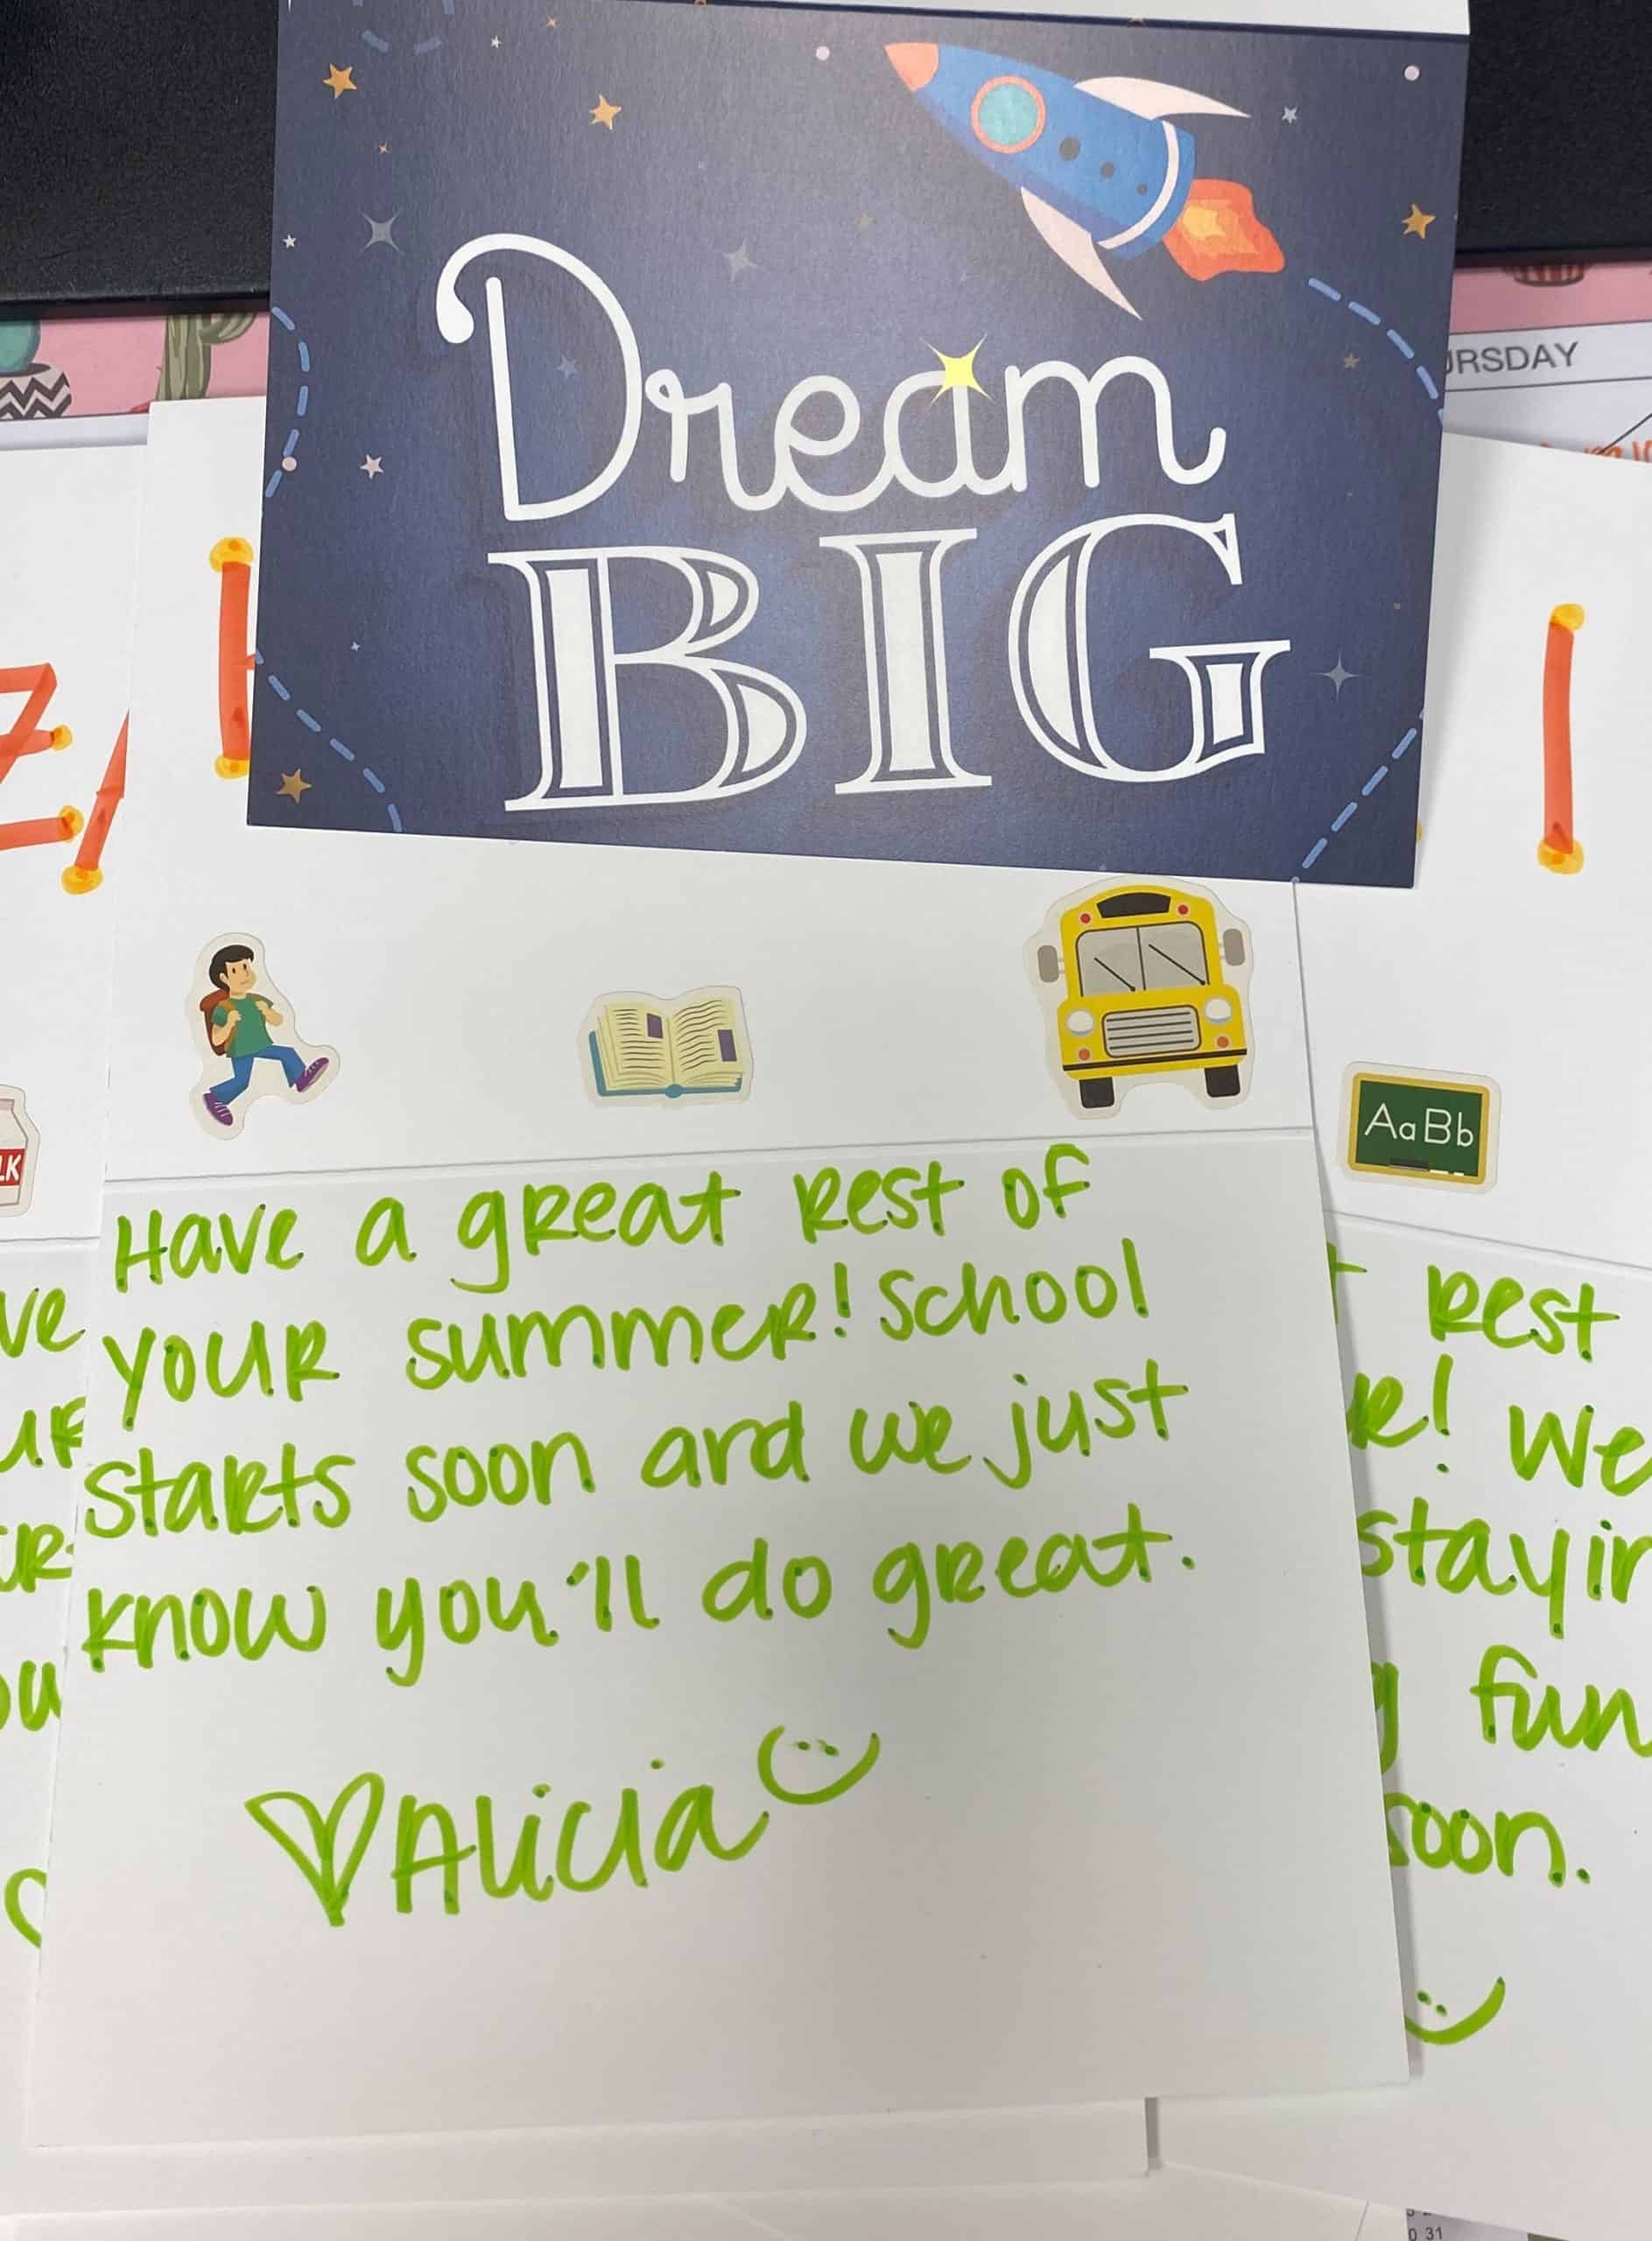 Dream
BIG
URSDAY
AaBb
LK
Have a great rest of
your summer! School
starts soon and we just
know you'll do great.
Alicia
ve
ur
ou
rest
r! We
stayin
g fun
soon.
0 31